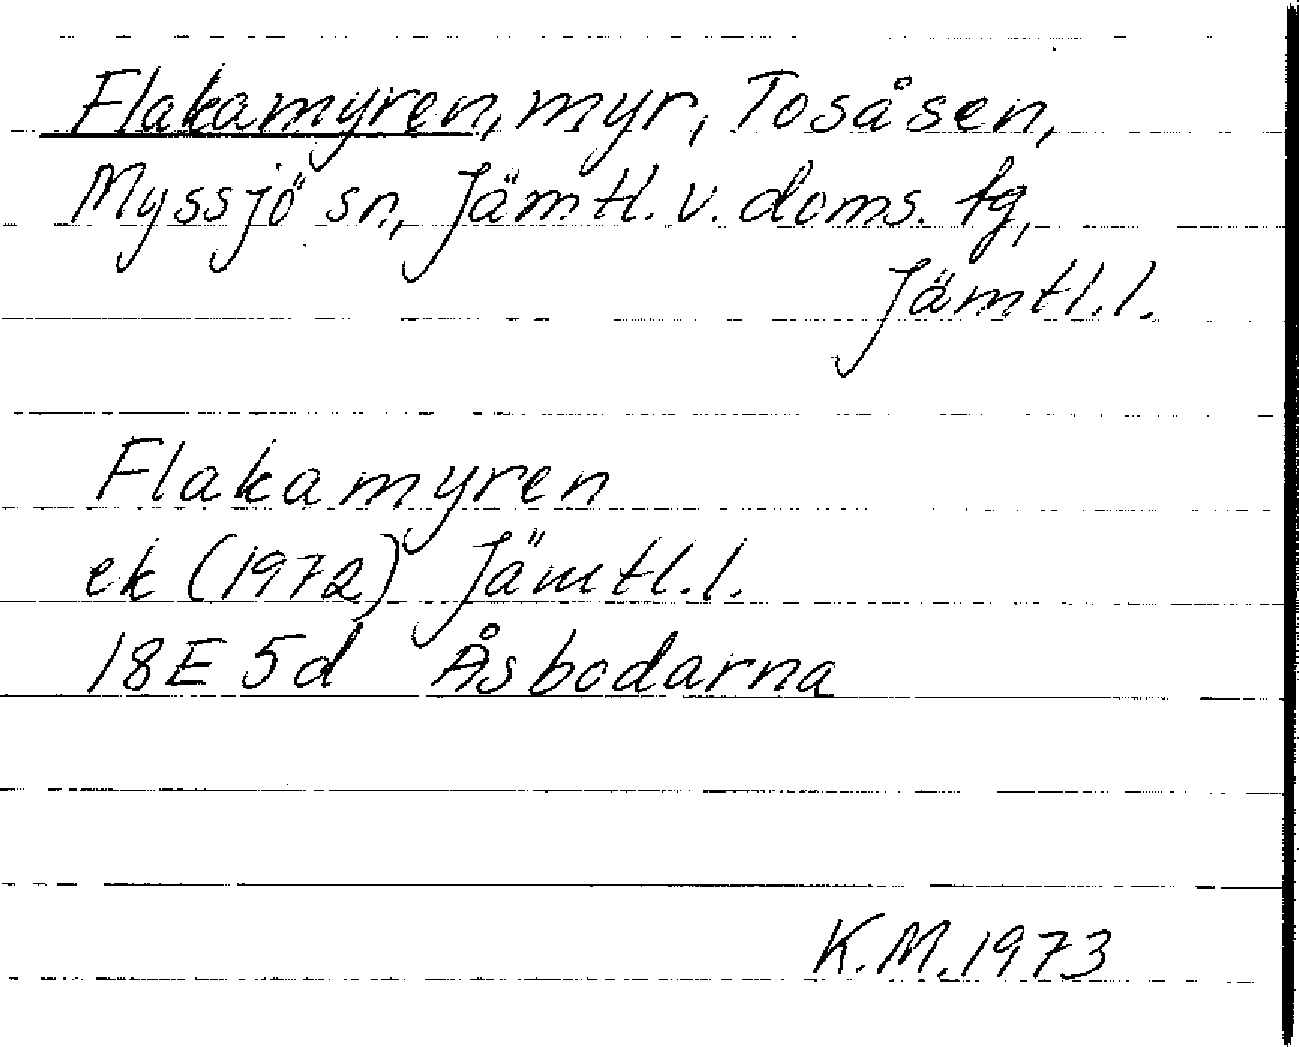 Flakamyren, myr, Tosåsen,
Myssjö sn, Jämtl. v. doms. tg,
Jämtl.l.
Flakamyren
ek (1972) Jämtl.l.
18E 5d Åsbodarna
K.M. 1973